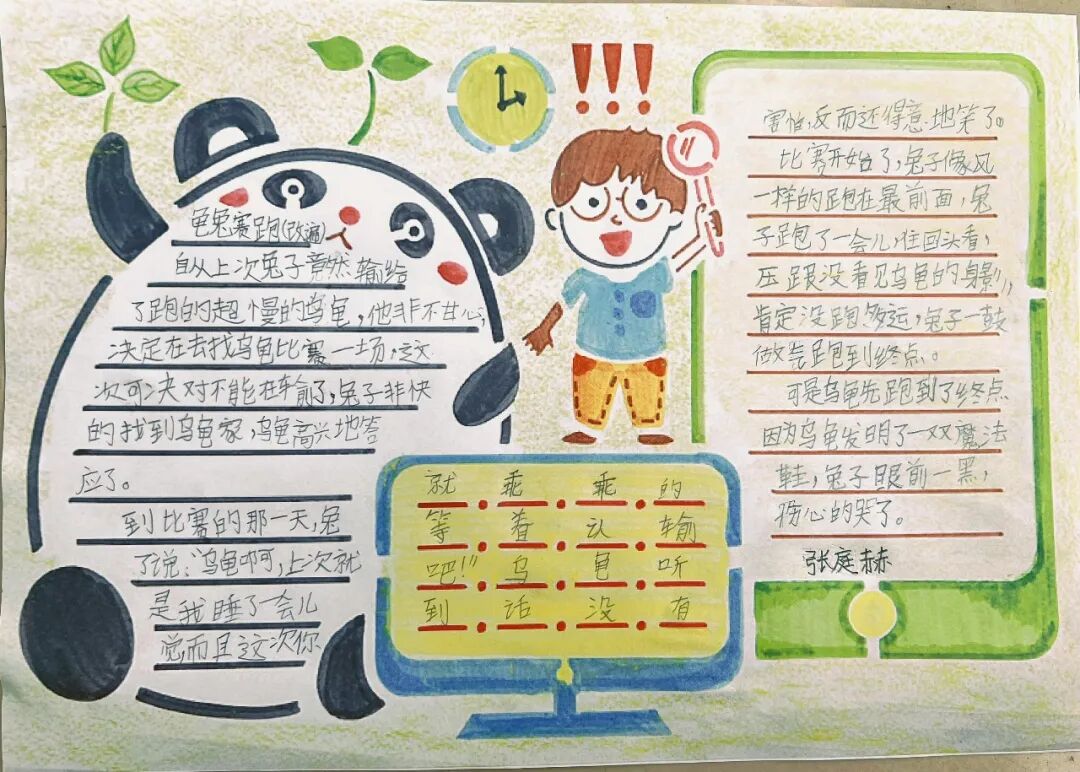 龟兔赛跑(改遍)
自从上次兔子竟然输给
了跑的超慢的乌龟,他非不甘心,
决定在去找乌龟比赛一场,这
次可决对不能在输了,兔子非快
的找到乌龟家,乌龟高兴地答
应了。
到比赛的那一天,兔
了说:“乌龟啊,上次就
是我睡了一会儿
觉而且这次你
就乖乖的
等着认输
吧!”乌龟听
到话没有
害怕,反而还得意地笑了。
比赛开始了,兔子像风
一样的跑在最前面,兔
子跑了一会儿,往回头看,
压跟没看见乌龟的身影,
肯定没跑多远,兔子一鼓
做气跑到终点。
可是乌龟先跑到了终点
因为乌龟发明了一双魔法
鞋,兔子眼前一黑,
伤心的哭了。
张庭赫